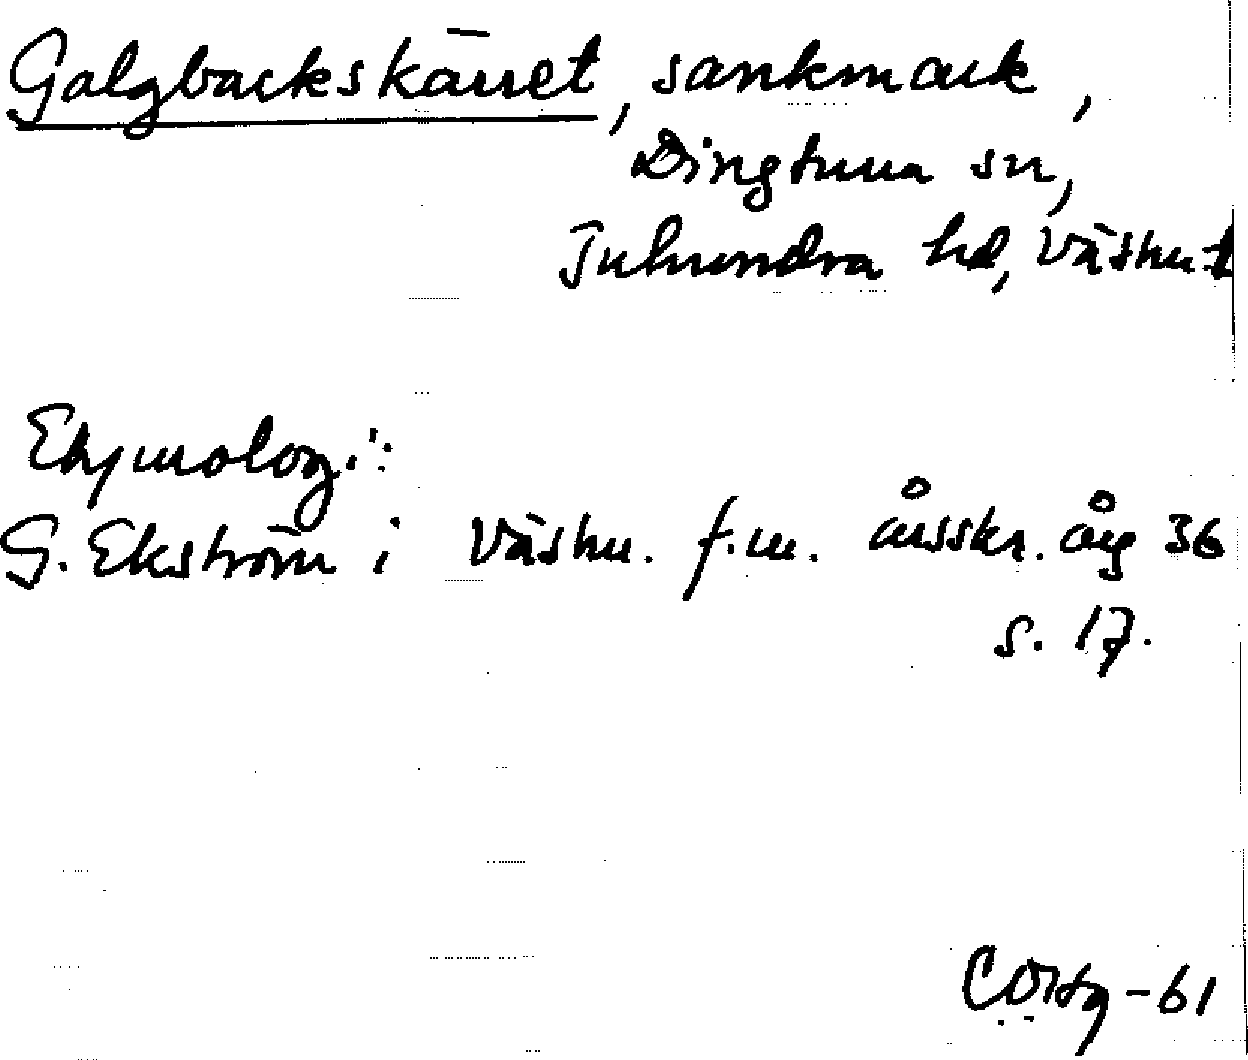 Galgbackskärret, sankmark,
Dingtuna sn,
Tuhundra hd, Västml
Etymologi:
G. Ekström i Västm. f.m. årsskr. årg 36
s. 17.
-61